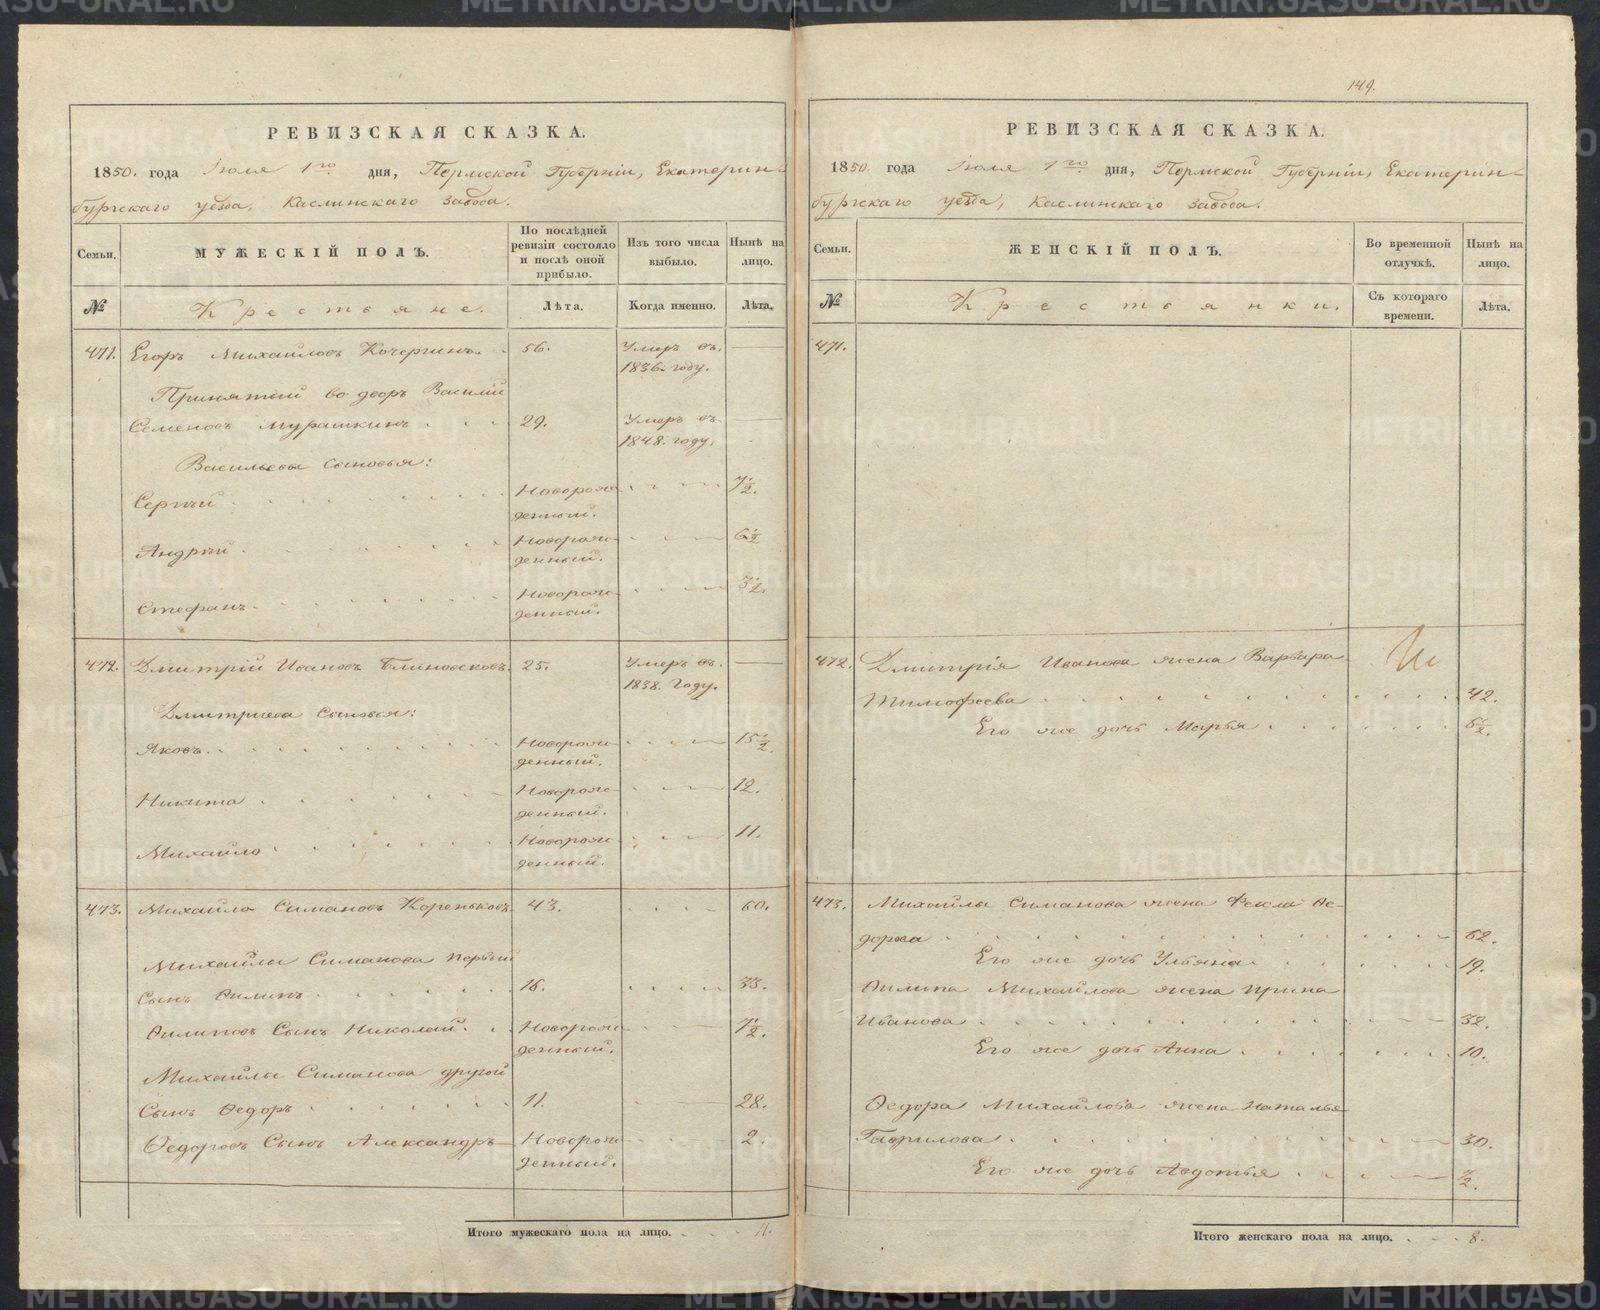 РЕВИЗСКАЯ СКАЗКА.
1850. года Іюля 1го дня, Пермской Губерніи, Екатерин-
бургскаго уезда, Каслинскаго завода.
Семьи.
МУЖЕСКІЙ ПОЛЪ.
По послѣдней
ревизіи состояло
и послѣ оной
прибыло.
Изъ того числа
выбыло.
Нынѣ на
лицо.
№
Крестьяне.
Лѣта.
Когда именно.
Лѣта.
471. Егоръ Михайловъ Кочергинъ. 56. Умеръ въ
1836. году.
Принятый во дворъ Василій
Семеновъ Мурашкинъ 29. Умеръ въ
1848. году.
Васильевы Сыновья:
Сергѣй Новорож- 7 1/2.
денный.
Андрей Новорож- 6 1/2
денный.
Стефанъ Новорож- 3 1/2.
денный.
472. Дмитрій Ивановъ Блиновсковъ. 25. Умеръ въ
1838. Году.
Дмитріева Сыновья:
Яковъ. Новорож- 15 1/2.
денный.
Никита Новорож- 12.
денный.
Михайло Новорож- 11.
денный.
473. Михайло Симановъ Кореньковъ 43. 60.
Михайлы Симанова первый
Сынъ Филипъ 16. 33.
Филиповъ Сынъ Николай. Новорож- 7 1/2.
денный.
Михайлы Симанова другой
Сынъ Ѳедоръ 11. 28.
Ѳедоровъ Сынъ Александръ Новорож- 2.
денный.
Итого мужескаго пола на лицо. 11.
149.
РЕВИЗСКАЯ СКАЗКА.
1850. года Іюля 1го дня, Пермской Губерніи, Екатерин-
бургскаго уезда, Каслинскаго завода.
Семьи.
ЖЕНСКІЙ ПОЛЪ.
Во временной
отлучкѣ.
Нынѣ на
лицо.
№
Крестьянки.
Съ котораго
времени.
Лѣта.
471.
472. Дмитрія Иванова жена Варвара
Тимофеева 42.
Его же дочь Марья 6 1/2.
473. Михайлы Симанова жена Фекла Ѳе-
дорова 62.
Его же дочь Ульяна 19.
Филипа Михайлова жена Ирина
Иванова 32.
Его же дочь Анна 10.
Ѳедора Михайлова жена Наталья
Гаврилова 30.
Его же дочь Авдотья 1/2.
Итого женскаго пола на лицо. 8.
METRIKI.GASO-URAL.RU